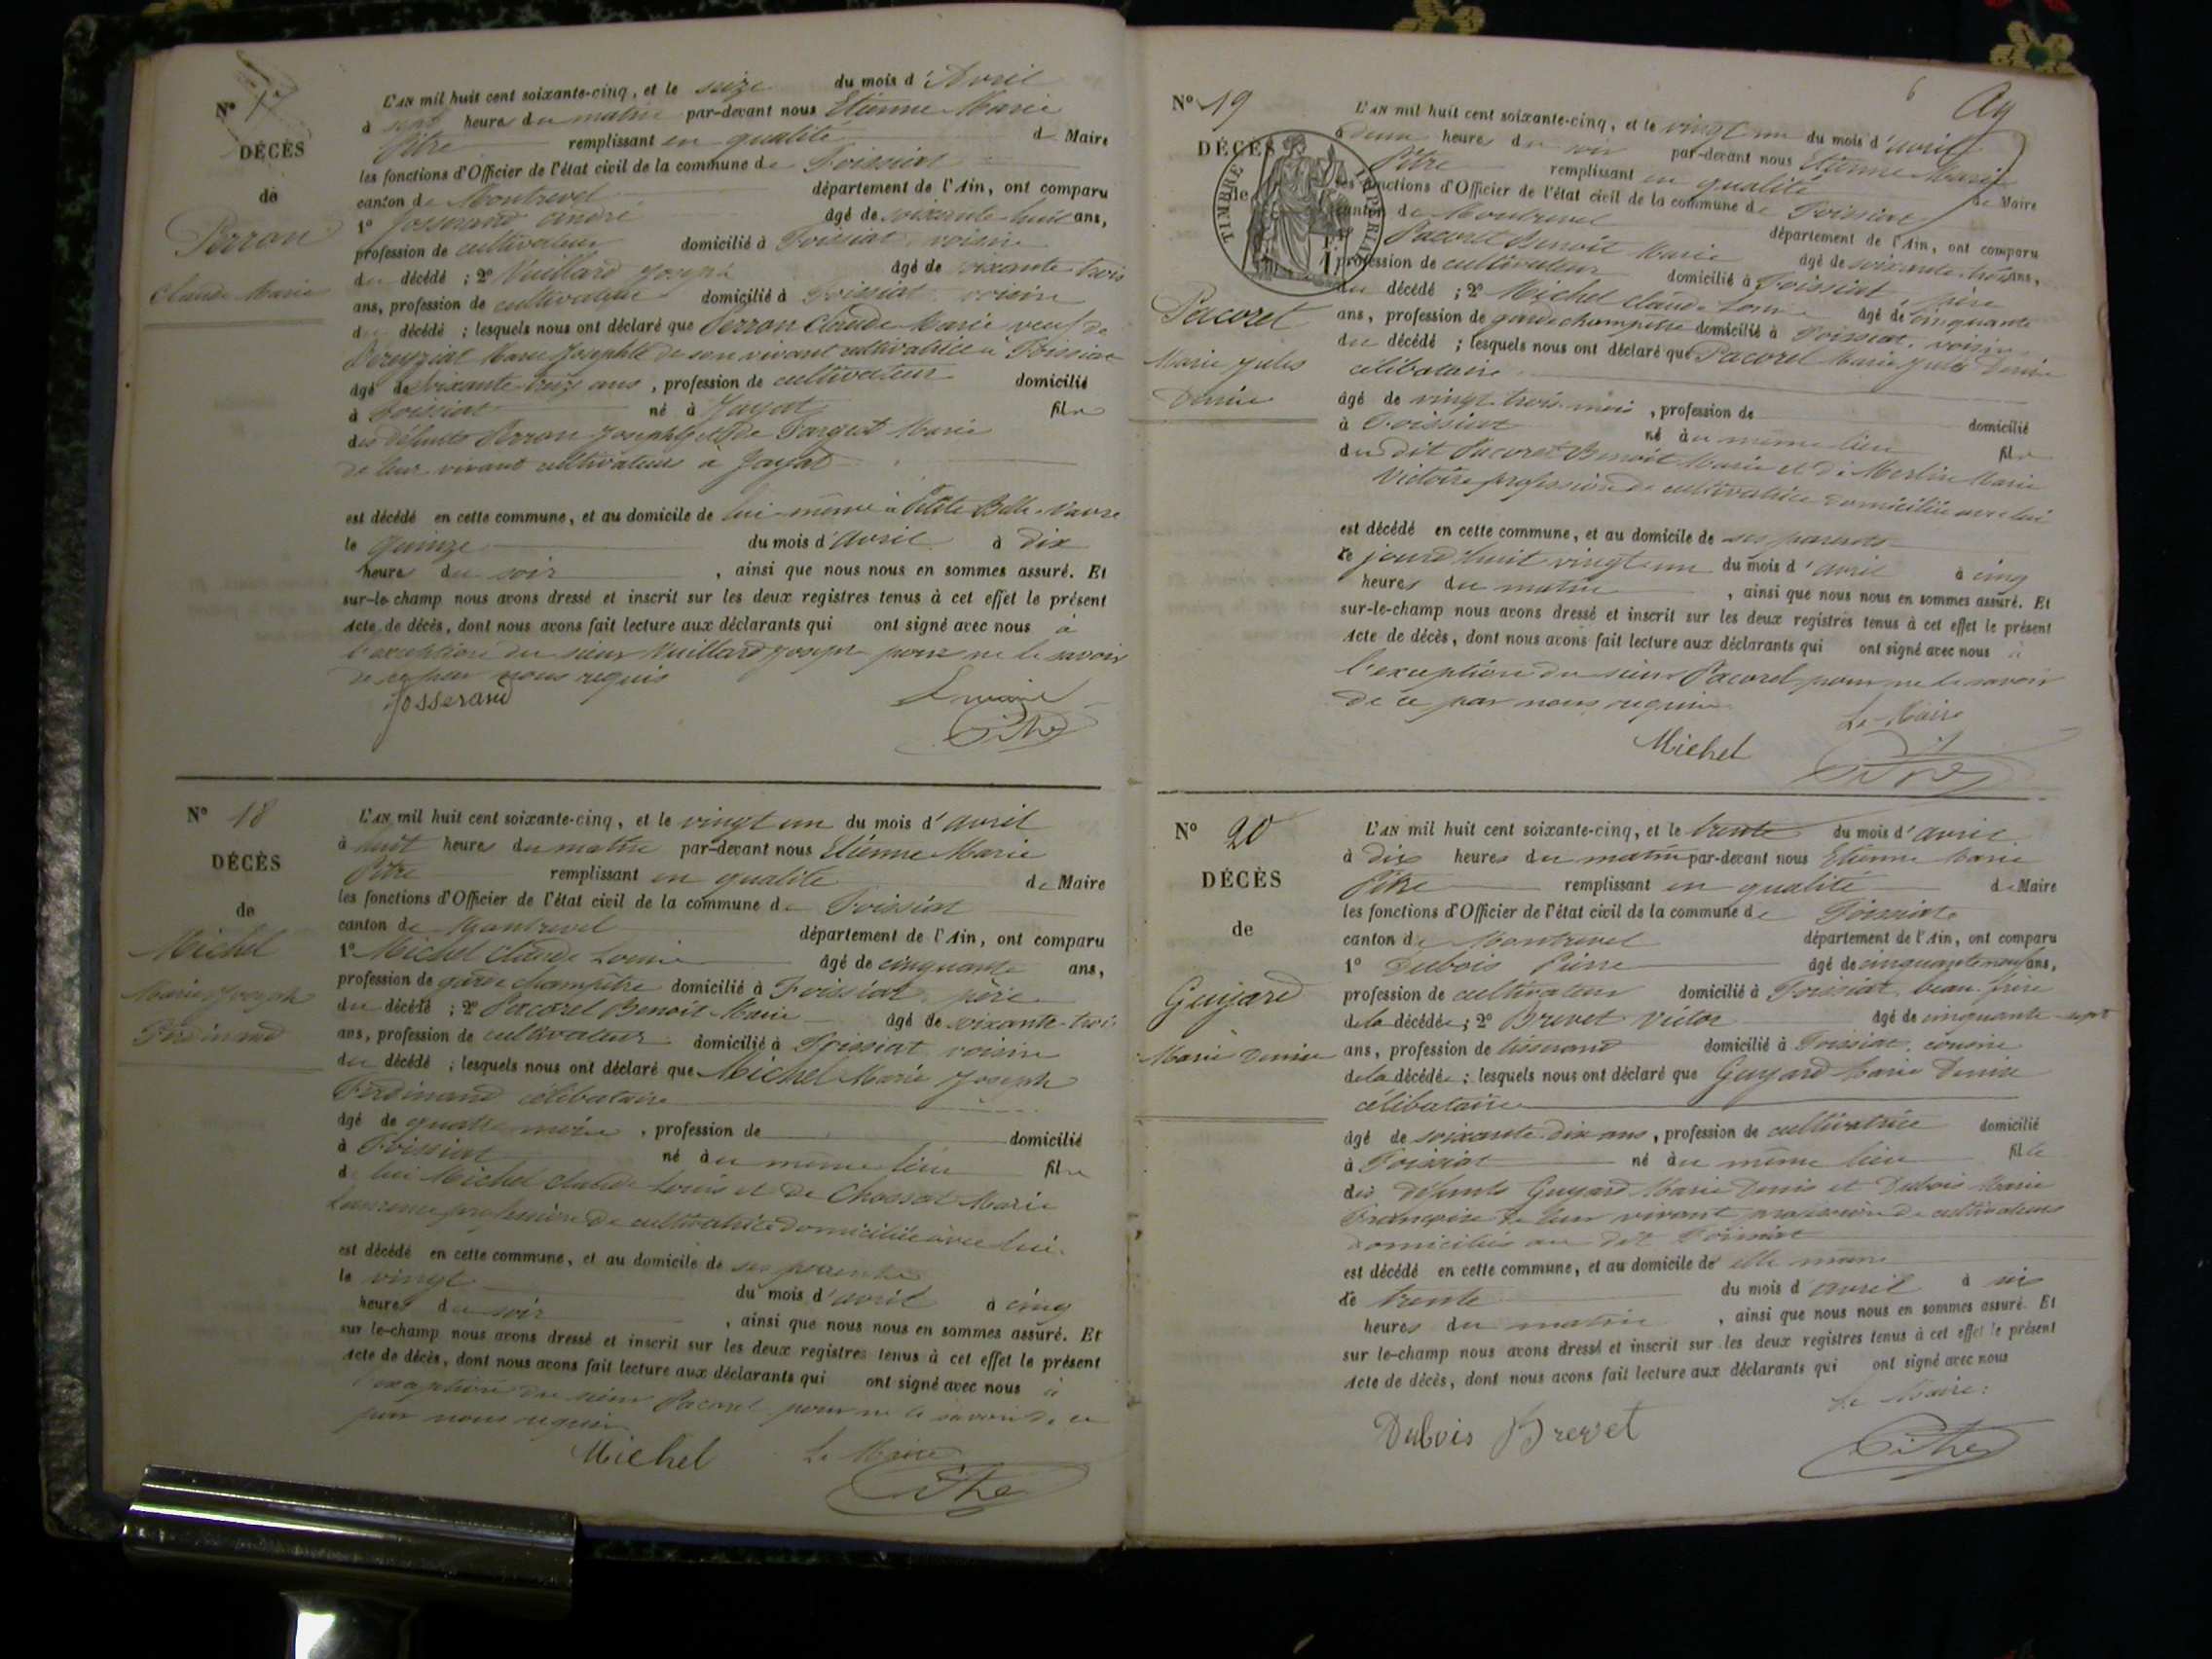 N° 17
DÉCÈS
de
Perron
Claude Marie
L'AN mil huit cent soixante-cinq, et le seize du mois d'Avril
à sept heures du matin par-devant nous Etienne Marie
Pitre remplissant en qualité de Maire
les fonctions d'Officier de l'état civil de la commune de Foissiat
canton de Montrevel département de l'Ain, ont comparu
1° Josserand André âgé de soixante-huit ans,
profession de cultivateur domicilié à Foissiat voisin
du décédé ; 2° Vuillard Joseph âgé de soixante trois
ans, profession de cultivateur domicilié à Foissiat voisin
du décédé ; lesquels nous ont déclaré que Perron Claude Marie veuf de
Marie Josephte de son vivant cultivatrice à Foissiat
âgé de soixante treize ans, profession de cultivateur domicilié
à Foissiat né à Jayat fils
des défunts Perron Joseph et de Marie
de leur vivant cultivateurs à Jayat
est décédé en cette commune, et au domicile de lui-même à Petite Belle-Vavre
le quinze du mois d'avril à dix
heures du soir, ainsi que nous nous en sommes assuré. Et
sur-le-champ nous avons dressé et inscrit sur les deux registres tenus à cet effet le présent
Acte de décès, dont nous avons fait lecture aux déclarants qui ont signé avec nous à
l'exception du sieur Vuillard Joseph pour ne le savoir
de ce par nous requis
Josserand Le maire
Pitre
N° 18
DÉCÈS
de
Michel
Marie Joseph
Ferdinand
L'AN mil huit cent soixante-cinq, et le vingt un du mois d'avril
à huit heures du matin par-devant nous Etienne Marie
Pitre remplissant en qualité de Maire
les fonctions d'Officier de l'état civil de la commune de Foissiat
canton de Montrevel département de l'Ain, ont comparu
1° Michel Claude Louis âgé de cinquante ans,
profession de garde champêtre domicilié à Foissiat père
du décédé ; 2° Pacoret Benoit Marie âgé de soixante-trois
ans, profession de cultivateur domicilié à Foissiat voisin
du décédé ; lesquels nous ont déclaré que Michel Marie Joseph
Ferdinand célibataire
âgé de quatre mois, profession de domicilié
à Foissiat né à u même lieu fils
de lui Michel Claude Louis et de Chossat Marie
Laurence profession de cultivatrice domiciliée avec lui
est décédé en cette commune, et au domicile de ses parents
le vingt du mois d'avril à cinq
heures du soir, ainsi que nous nous en sommes assuré. Et
sur-le-champ nous avons dressé et inscrit sur les deux registres tenus à cet effet le présent
Acte de décès, dont nous avons fait lecture aux déclarants qui ont signé avec nous à
l'exception du sieur Pacoret pour ne le savoir de ce
par nous requis
Michel Le Maire
Pitre
6
N° 19
DÉCÈS
de
TIMBRE IMPÉRIAL
Pacoret
Marie Jules
Denise
L'AN mil huit cent soixante-cinq, et le vingt un du mois d'avril
à deux heures du soir par-devant nous Etienne Marie
Pitre remplissant en qualité de Maire
les fonctions d'Officier de l'état civil de la commune de Foissiat
canton de Montrevel département de l'Ain, ont comparu
1° Pacoret Benoit Marie âgé de soixante-trois ans,
profession de cultivateur domicilié à Foissiat père
du décédé ; 2° Michel Claude Louis âgé de cinquante
ans, profession de garde champêtre domicilié à Foissiat voisin
du décédé ; lesquels nous ont déclaré que Pacoret Marie Jules Denise
célibataire
âgé de vingt trois mois, profession de domicilié
à Foissiat né à u même lieu fils
du dit Pacoret Benoit Marie et de Merlin Marie
Victoire profession de cultivatrice domiciliée avec lui
est décédé en cette commune, et au domicile de ses parents
ce jourd'huit vingt un du mois d'avril à cinq
heures du matin, ainsi que nous nous en sommes assuré. Et
sur-le-champ nous avons dressé et inscrit sur les deux registres tenus à cet effet le présent
Acte de décès, dont nous avons fait lecture aux déclarants qui ont signé avec nous à
l'exception du sieur Pacoret pour ne le savoir
de ce par nous requis
Le Maire
Michel Pitre
N° 20
DÉCÈS
de
Guyard
Marie Denise
L'AN mil huit cent soixante-cinq, et le trente du mois d'avril
à dix heures du matin par-devant nous Etienne Marie
Pitre remplissant en qualité de Maire
les fonctions d'Officier de l'état civil de la commune de Foissiat
canton de Montrevel département de l'Ain, ont comparu
1° Dubois Pierre âgé de cinquante neuf ans,
profession de cultivateur domicilié à Foissiat beau-frère
de la décédée ; 2° Brevet Victor âgé de cinquante-sept
ans, profession de tisserand domicilié à Foissiat cousin
de la décédée ; lesquels nous ont déclaré que Guyard Marie Denise
célibataire
âgé de soixante-dix ans, profession de cultivatrice domicilié
à Foissiat né à u même lieu fille
des défunts Guyard Marie Denis et Dubois Marie
Françoise de leur vivant profession de cultivateurs
domiciliés au dit Foissiat
est décédé en cette commune, et au domicile de elle même
le trente du mois d'avril à six
heures du matin, ainsi que nous nous en sommes assuré. Et
sur-le-champ nous avons dressé et inscrit sur les deux registres tenus à cet effet le présent
Acte de décès, dont nous avons fait lecture aux déclarants qui ont signé avec nous
Le Maire
Dubois Brevet Pitre